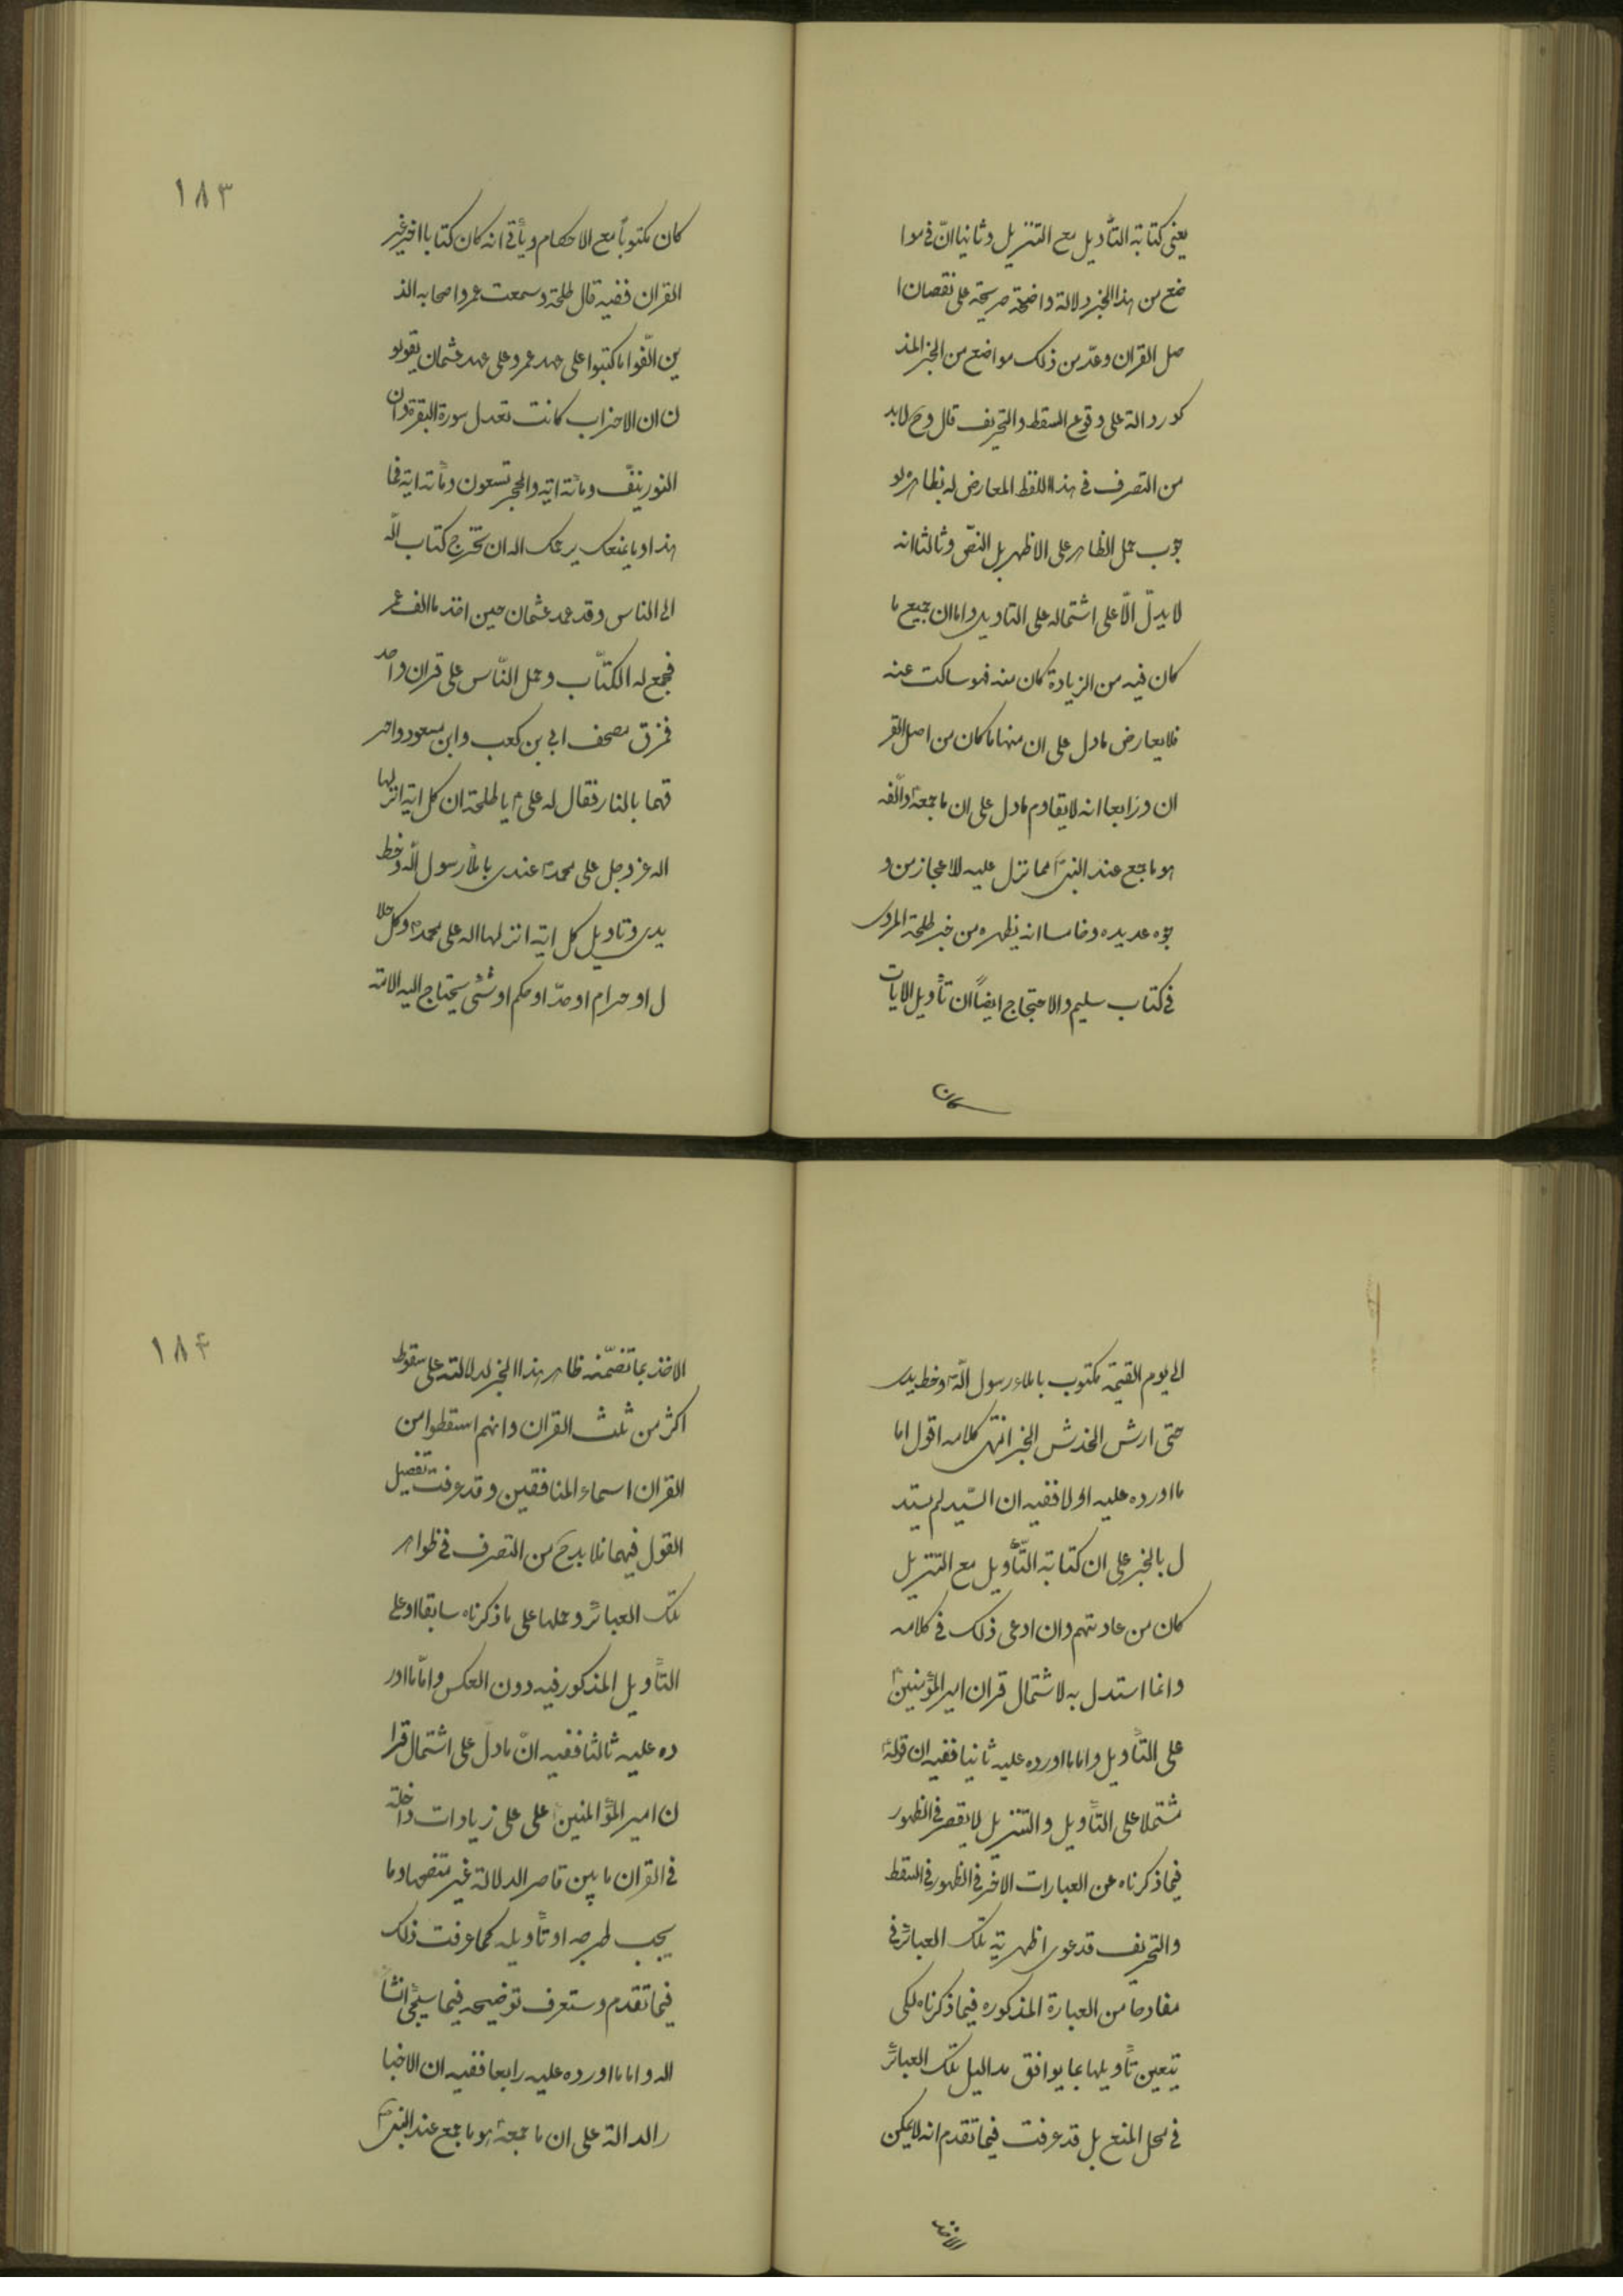 يعنى كتابة التأويل مع التنزيل وثانيا انّ فى موا
ضع من هذا الخبر دلالة واضحة صريحة على نقصان ا
صل القران وعدّ من ذلك مواضع من الخبر المذ
كور دالة على وقوع السقط والتحريف قال وح لابد
من التصرف فى هذا اللفظ المعارض له بظاهره لو
جوب حمل الظاهر على الاظهر بل النصّ وثالثا انه
لا يدلّ الّا على اشتماله على التاويل واما ان جميع ما
كان فيه من الزيادة كان منه فهو ساكت عنه
فلا يعارض ما دل على ان منها ما كان من اصل القر
ان ورابعا انه لا يقاوم ما دل على ان ما جمعه والّفه
هو ما جمع عند النبى مما نزل عليه للاعجاز من و
جوه عديده وخامسا انه يظهر من خبر طلحة المروى
فى كتاب سليم والاحتجاج ايضاً ان تأويل الايات
كان
١٨٣
كان مكتوباً مع الاحكام ويأتى انه كان كتابا اخر غير
القران ففيه قال طلحة وسمعت عمر واصحابه الذ
ين الّفوا ما كتبوا على عهد عمر وعلى عهد عثمان يقولو
ن ان الاحزاب كانت تعدل سورة البقرة وان
النور نيّف ومائة اية والحجر تسعون ومأئة اية فما
هذا وما يمنعك يرحمك اله ان تخرج كتاب الله
الى الناس وقد عمد عثمان حين اخذ ما الف عمر
فجمع له الكتّاب وحمل النّاس على قران واحد
فمزق مصحف ابى بن كعب وابن مسعود واحر
قهما بالنار فقال له على ع يا طلحة ان كل اية انزلها
اله عز وجل على محمد ص عندى باملأ رسول الله وخط
يدى وتاويل كل اية انزلها اله على محمد ص وكل حلا
ل او حرام او حدّ او حكم او شئى يحتاج اليه الامة
الى يوم القيمة مكتوب باملاء رسول الله وخط يدى
حتى ارش الخدش الخبر انتهى كلامه اقول اما
ما اورده عليه اولا ففيه ان السّيد لم يستد
ل بالخبر على ان كتابة التّأويل مع التنزيل
كان من عادتهم وان ادعى ذلك فى كلامه
وانما استدل به لاشتمال قران امير المؤمنين
على التأويل واما ما اورده عليه ثانيا ففيه ان قوله
مشتملا على التأويل والتنزيل لا يقصر فى الظهور
فيما ذكرناه عن العبارات الاخر فى الظهور فى السقط
والتحريف فدعوى اظهرية تلك العبائر فى
مفادها من العبارة المذكوره فيما ذكرناه لكى
يتعين تأويلها بما يوافق مداليل تلك العبائر
فى محل المنع بل قد عرفت فيما تقدم انه لا يمكن
الاخذ
١٨٤
الاخذ بما تضمّنه ظاهر هذا الخبر لدلالته على سقوط
اكثر من ثلث القران وانهم اسقطوا من
القران اسماء المنافقين وقد عرفت تفصيل
القول فيهما فلا بد ح من التصرف فى ظواهر
تلك العبائر وحملها على ما ذكرناه سابقا او على
التأويل المذكور فيه دون العكس وامّا ما اور
ده عليه ثالثا ففيه انّ ما دل على اشتمال قرا
ن امير المؤالمنين على على زيادات داخلة
فى القران ما بين قاصر الدلالة غير متضحها وما
يجب طرحه او تأويله كما عرفت ذلك
فيما تقدم وستعرف توضيحه فيما سيجئ انشأ
اله واما ما اورده عليه رابعا ففيه ان الاخبا
ر الدالة على ان ما جمعه هو ما جمع عند النبى ص